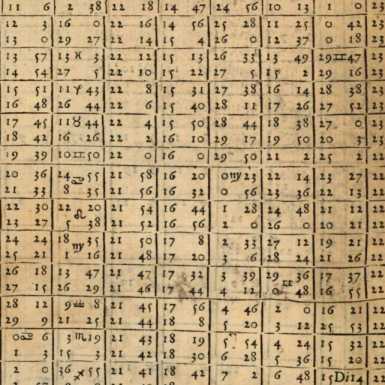 11 6 2 38 22 18 14 47 24 56 10 13 1 0 23
12 3 16 0 22 16 14 56 25 28 11 25 0 42
13 0 29 27 22 14 15 4 26 0 12 37 0 18 23
13 57 13 ♓ 3 22 12 15 13 26 33 13 49 29 ♊ 47
14 54 27 5 22 10 15 22 27 5 15 2 29 16
15 51 11 ♈ 43 22 8 15 31 27 38 16 14 28 38
16 48 26 44 22 6 15 40 28 11 17 26 27 52
17 45 11 ♉ 44 22 4 15 50 28 44 18 38 27 0
18 42 16 26 22 2 16 10 29 17 19 50 20 3
19 39 10 ♊ 50 22 0 16 0 29 50 21 2 25 2 22
20 36 24 ♋ 55 21 58 16 20 0 ♍ 23 22 14 23 27
21 33 8 35 21 56 16 32 0 56 23 26 22 13
22 30 22 ♌ 20 21 54 16 44 1 28 24 48 21 12
23 27 5 38 21 52 16 56 2 0 26 0 20 10
24 24 18 ♍ 35 21 50 17 8 2 33 27 12 19 21
25 21 1 16 21 48 17 20 3 6 28 24 21 26
26 18 13 47 21 47 17 32 3 39 29 36 17 37 22
27 15 26 29 21 46 17 44 4 12 0 48 16 55 22
28 12 9 ♒ 8 21 45 17 56 4 46 2 0 16 21
29 9 21 25 21 44 18 8 5 20 3 12 25 53 22
0 ♋ 6 3 ♏ 19 21 43 18 19 5 54 4 24 15 32
1 3 15 3 21 42 18 30 6 28 5 36 15 20 22
2 0 36 ♐ 55 21 41 18 42 7 2 6 48 15 Di 14